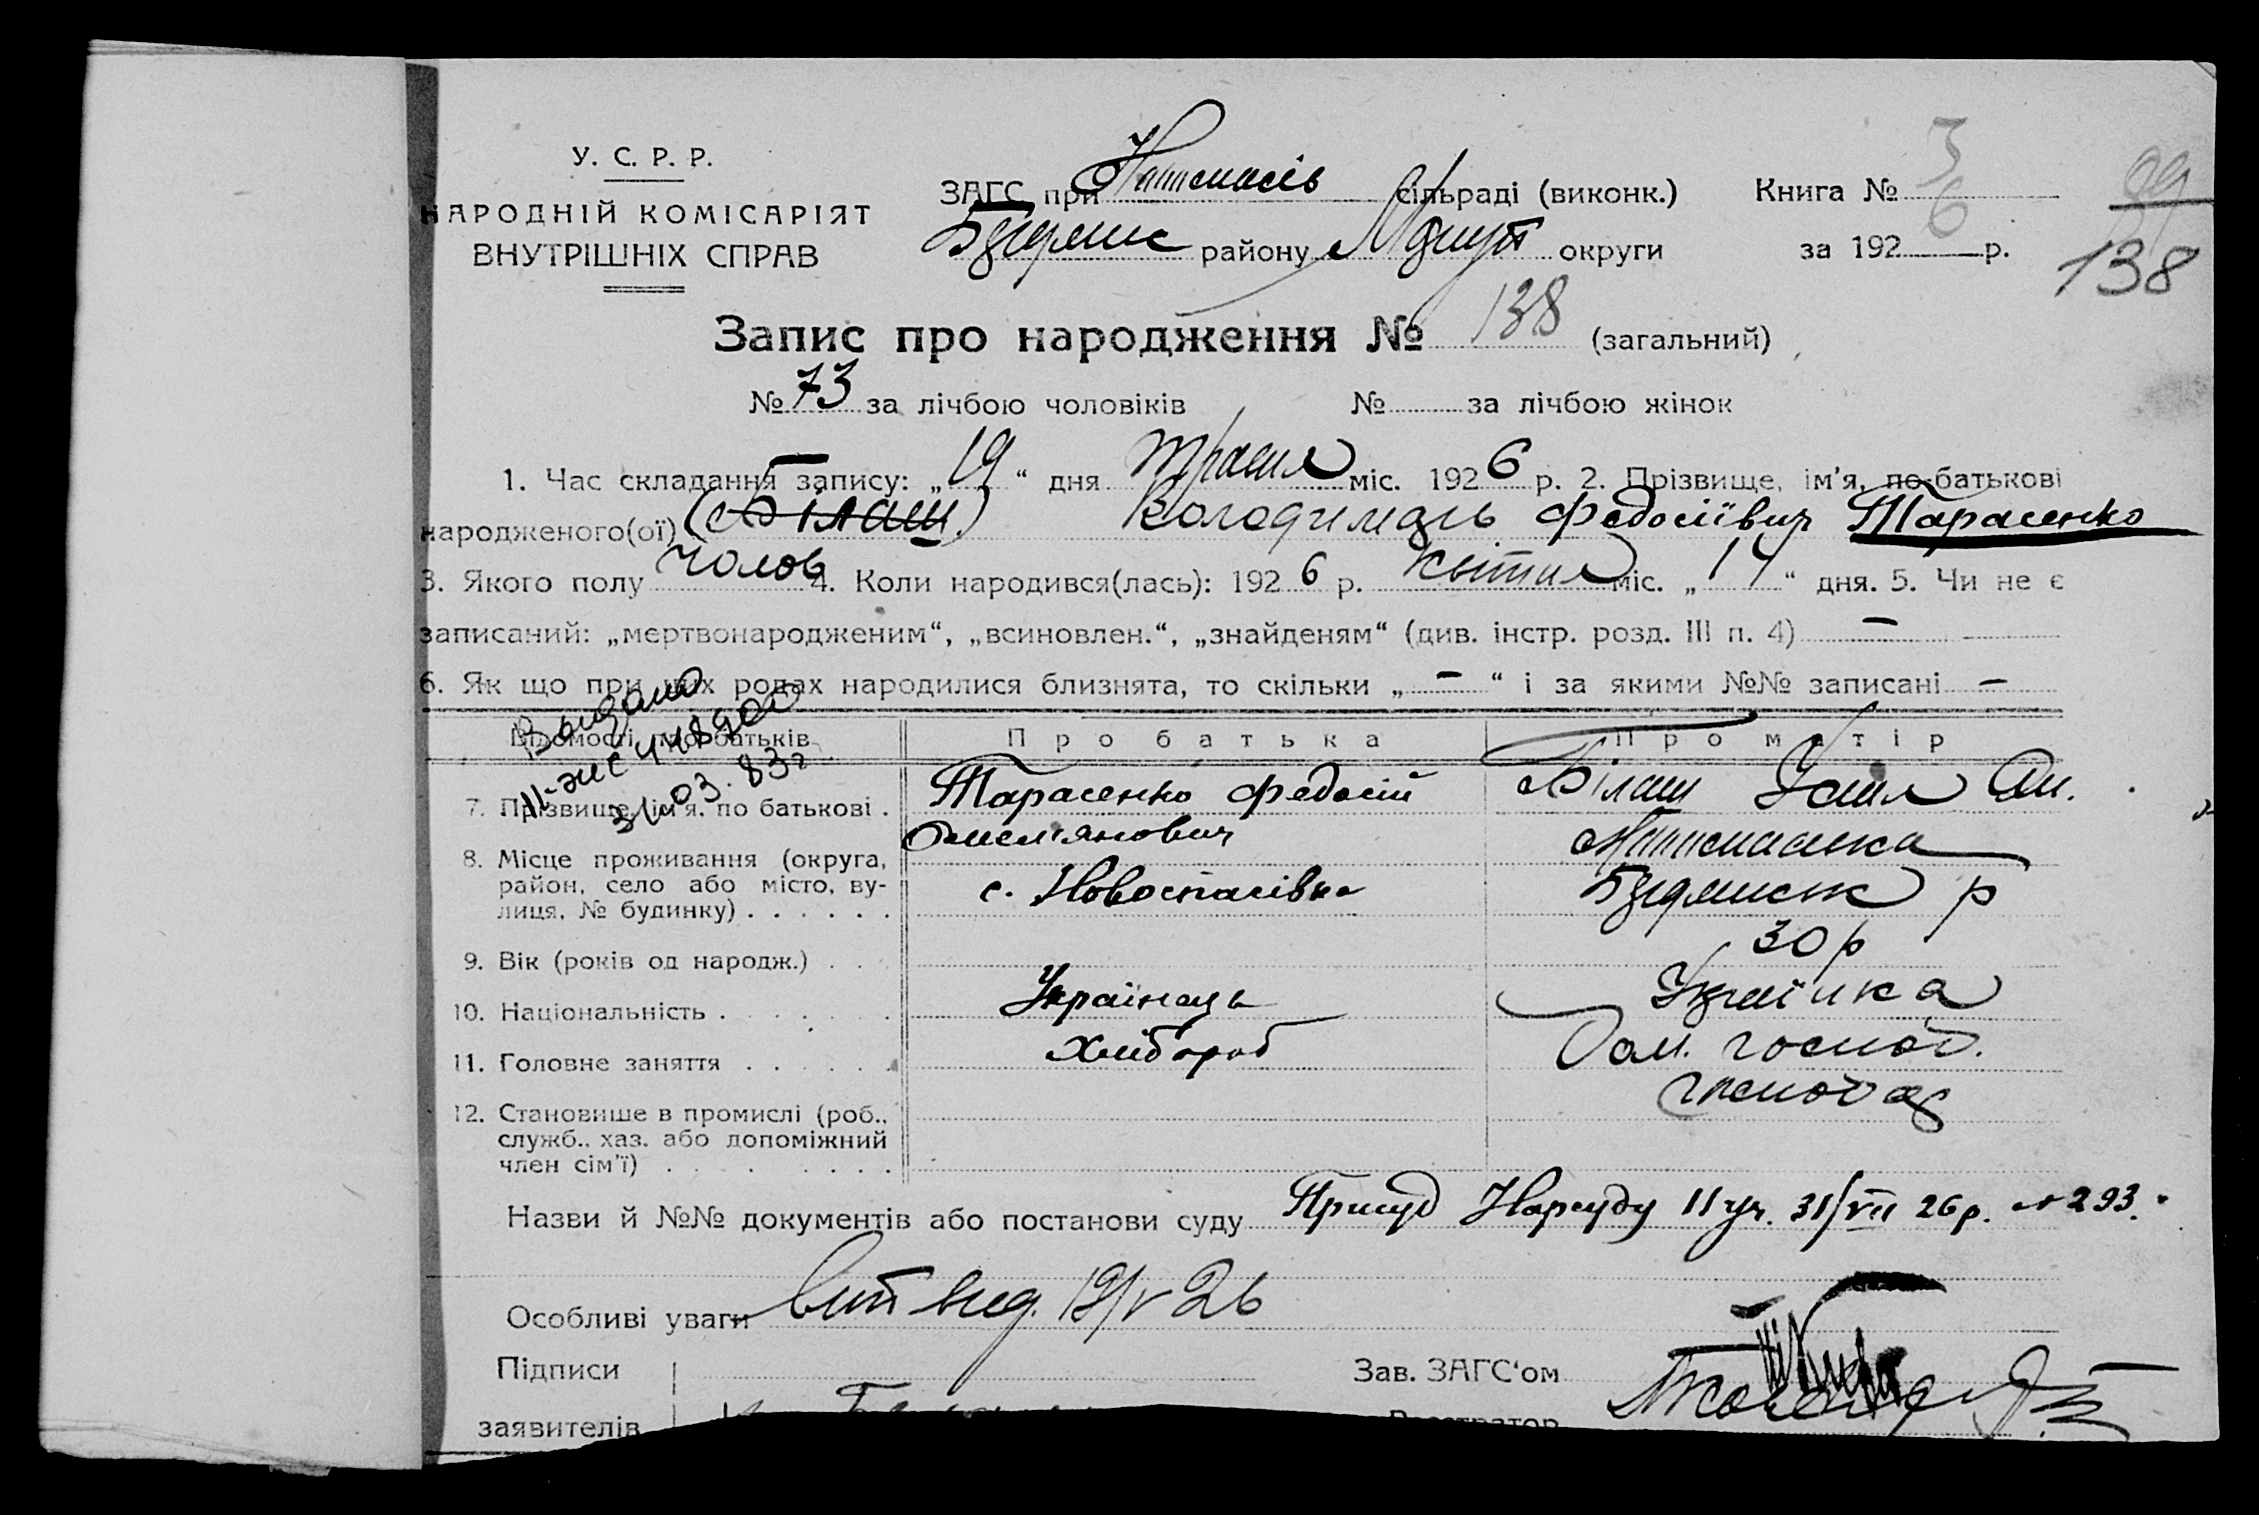 У. С. Р. Р.
НАРОДНІЙ КОМІСАРІЯТ
ВНУТРІШНІХ СПРАВ
ЗАГС при сільраді (виконк.)
району округи
Книга № 3
6
за 192 р.
99
138
Запис про народження № 138 (загальний)
№ 73 за лічбою чоловіків № за лічбою жінок
1. Час складання запису: „19“ дня травня міс. 1926 р. 2. Прізвище, ім'я, по-батькові
народженого(ої) (Білаш) Володимирь Федосіївич Тарасенко
3. Якого полу чолов 4. Коли народився(лась): 1926 р. квітня міс. „14“ дня. 5. Чи не є
записаний: „мертвонародженим“, „всиновлен.“, „знайденям“ (див. інстр. розд. III п. 4) —
6. Як що при цих родах народилися близнята, то скільки „—“ і за якими №№ записані —
Відомості про батьків
Про батька
Про матір
Выдано
31.03.83г
7. Прізвище, ім'я, по батькові . Тарасенко Федосій Білаш
Омелянович
8. Місце проживання (округа, район, село або місто, вулиця, № будинку) . . . . . . с. Новоспасівка р
9. Вік (років од народж.) . . . 30 р
10. Національність . . . . . . . Українець Українка
11. Головне заняття . . . . . . Хлібороб Дом. господ.
12. Становише в промислі (роб., служб., хаз. або допоміжний член сім'ї) . . . . . . . .
Назви й №№ документів або постанови суду Присуд Нарсуду 11 уч. 31/VII 26 р. № 293.
Особливі уваги Вит вид. 19/V 26
Підписи
заявителів
Зав. ЗАГС'ом
Реєстратор